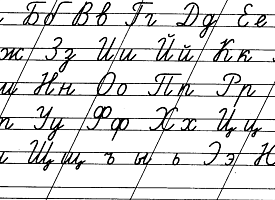 Б б В в Г г Д д Е е
ж З з И и Й й К к
Н н О о П п Р р
У у Ф ф Х х Ц ц
Щ щ ъ ы ь Э э Ю